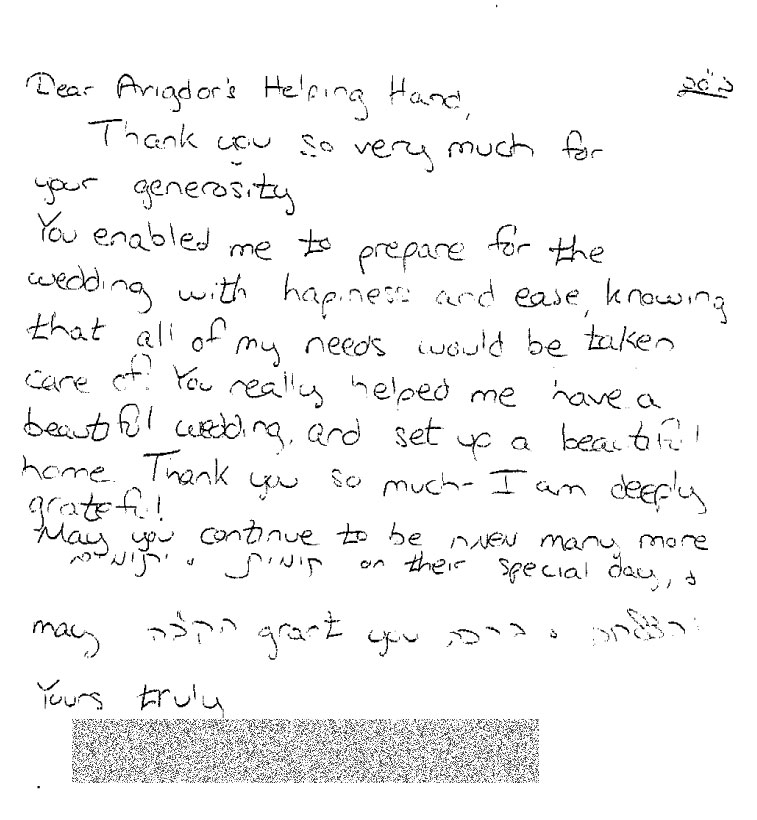 בס"ד
Dear Avigdor's Helping Hand,
Thank you so very much for
your generosity
You enabled me to prepare for the
wedding with happiness and ease, knowing
that all of my needs would be taken
care of! You really helped me have a
beautiful wedding, and set up a beautiful
home. Thank you so much- I am deeply
grateful!
May you continue to be משמח many more
on their special day, &
may הקב"ה grant you ברכה & הצלחה!
Yours truly